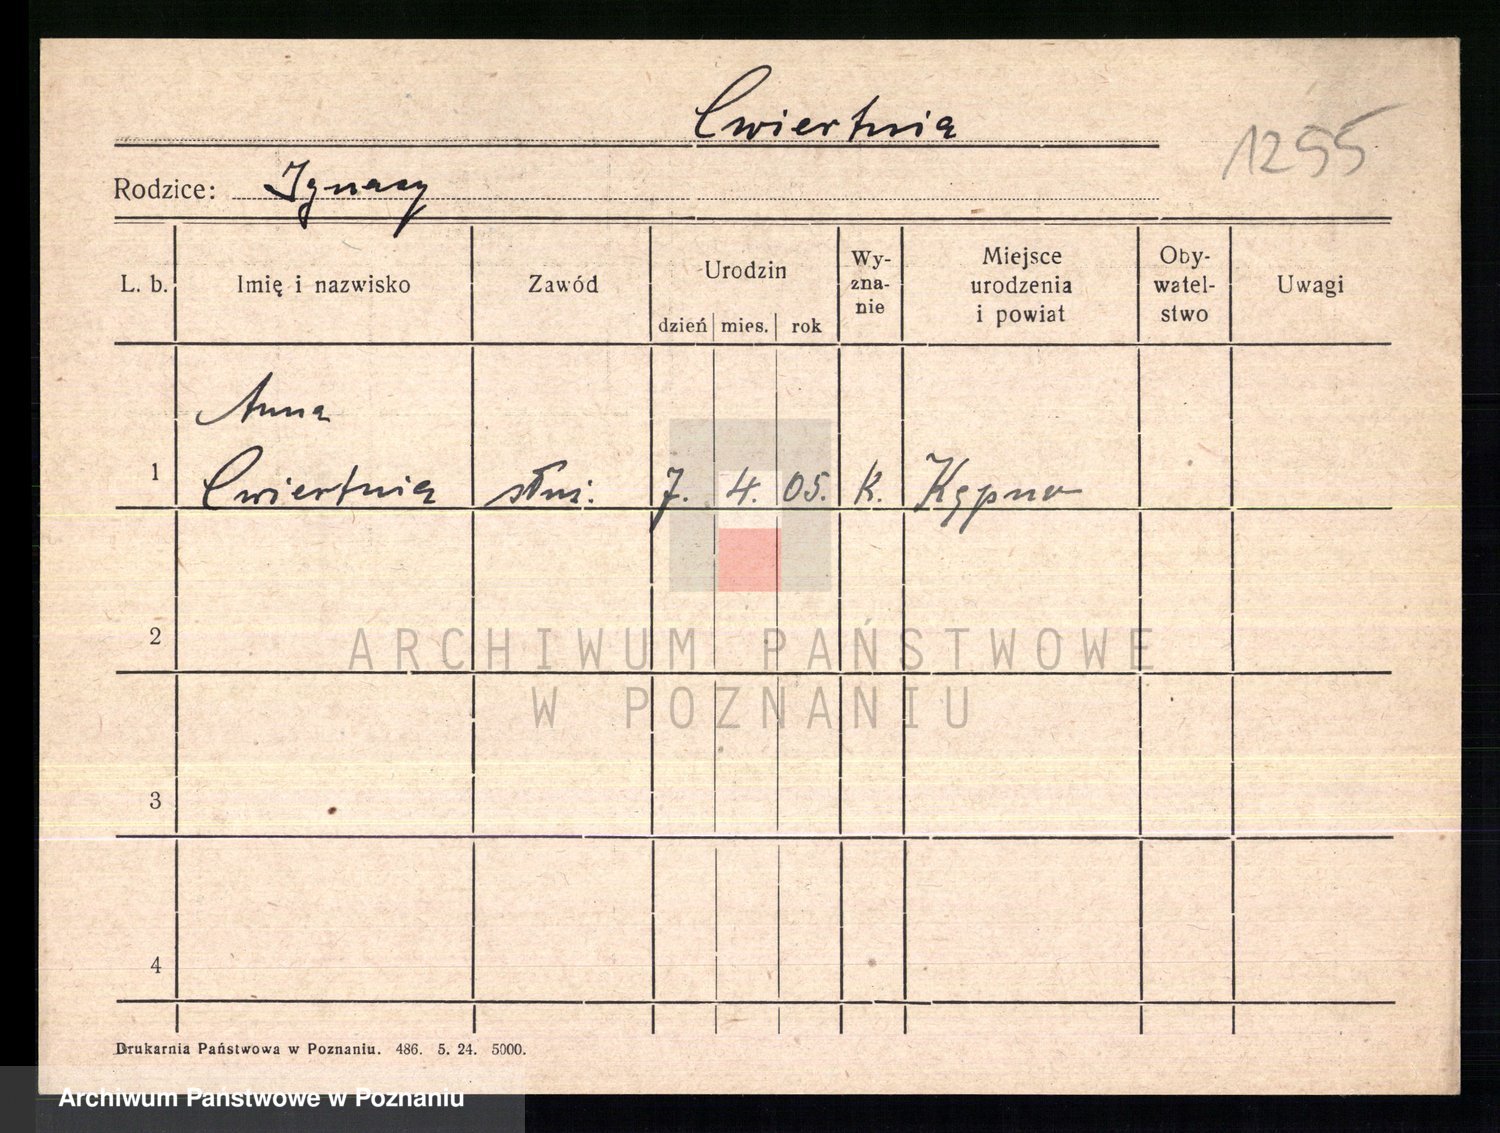 Cwiertnia
1255
Rodzice: Ignacy
L. b. Imię i nazwisko Zawód Urodzin dzień mies. rok Wy-zna-nie Miejsce urodzenia i powiat Oby-watel-stwo Uwagi
Anna
1 Cwiertnia służ. 7. 4. 05. k. Kępno
2
ARCHIWUM PAŃSTWOWE
W POZNANIU
3
4
Drukarnia Państwowa w Poznaniu. 486. 5. 24. 5000.
Archiwum Państwowe w Poznaniu